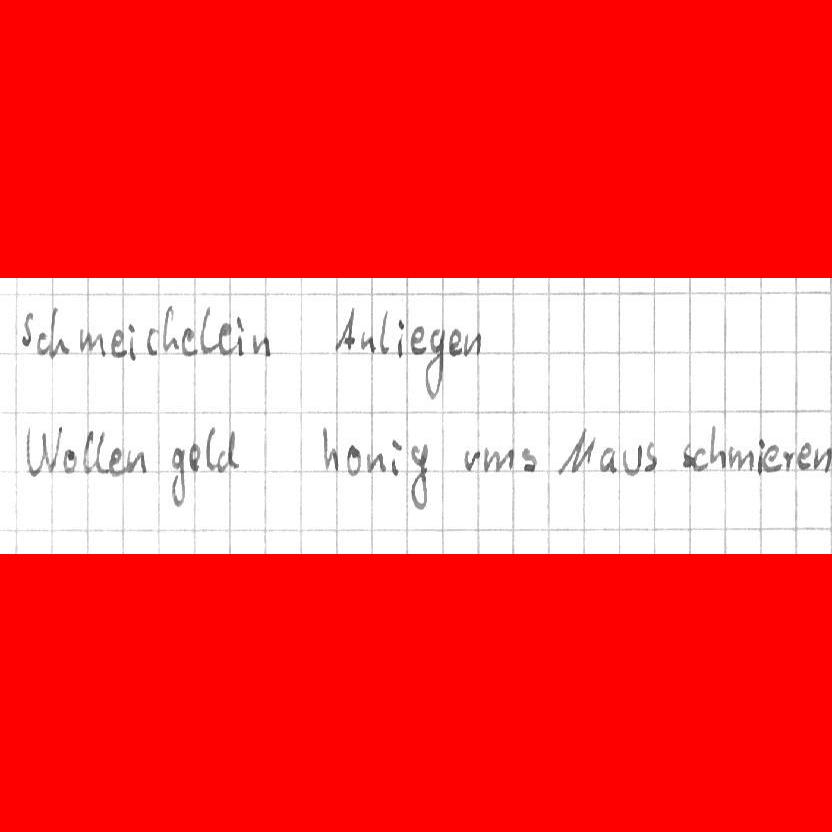 Schmeichelein Anliegen
Wollen geld honig ums Maus schmieren